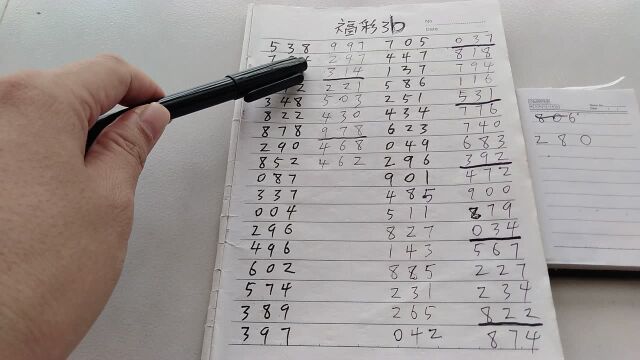 福彩3D
No
Date
538 997 705 037
297 447 818
314 137 794
221 586 116
348 503 251 531
822 430 434 776
878 978 623 740
290 468 049 683
852 462 296 392
087 901 472
337 485 900
004 511 879
296 827 034
496 143 567
602 885 227
574 231 234
389 265 822
397 042 874
806
280